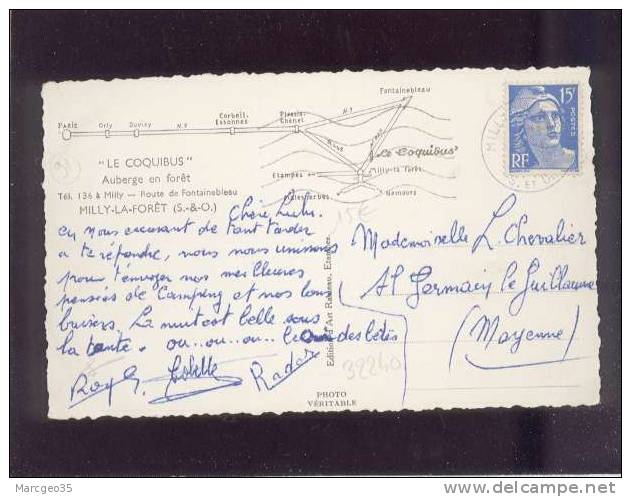 Fontainebleau
PARIS Orly Juvisy N.7 Corbeil-Essonnes Plessis-Chenet N.7
"Le Coquibus"
Milly-la-forêt
Etampes
Malesherbes
Nemours
15F
POSTES
RF
MILLY
"LE COQUIBUS"
Auberge en forêt
Tél. 136 à Milly — Route de Fontainebleau
MILLY-LA-FORÊT (S.-&-O.)
Chère Lulu.
En nous excusant de tant tarder
à te répondre, nous nous unissons
pour t'envoyer nos meilleures
pensées de Camping et nos bons
baisers. La nuit est belle sous
la tente. ou..ou..ou.. le des bêtes
Radar
15€
Mademoiselle L. Chevalier
St Germain le Guillaume
(Mayenne)
32240
PHOTO
VÉRITABLE
Marcgeo35 http://www.delcampe.net